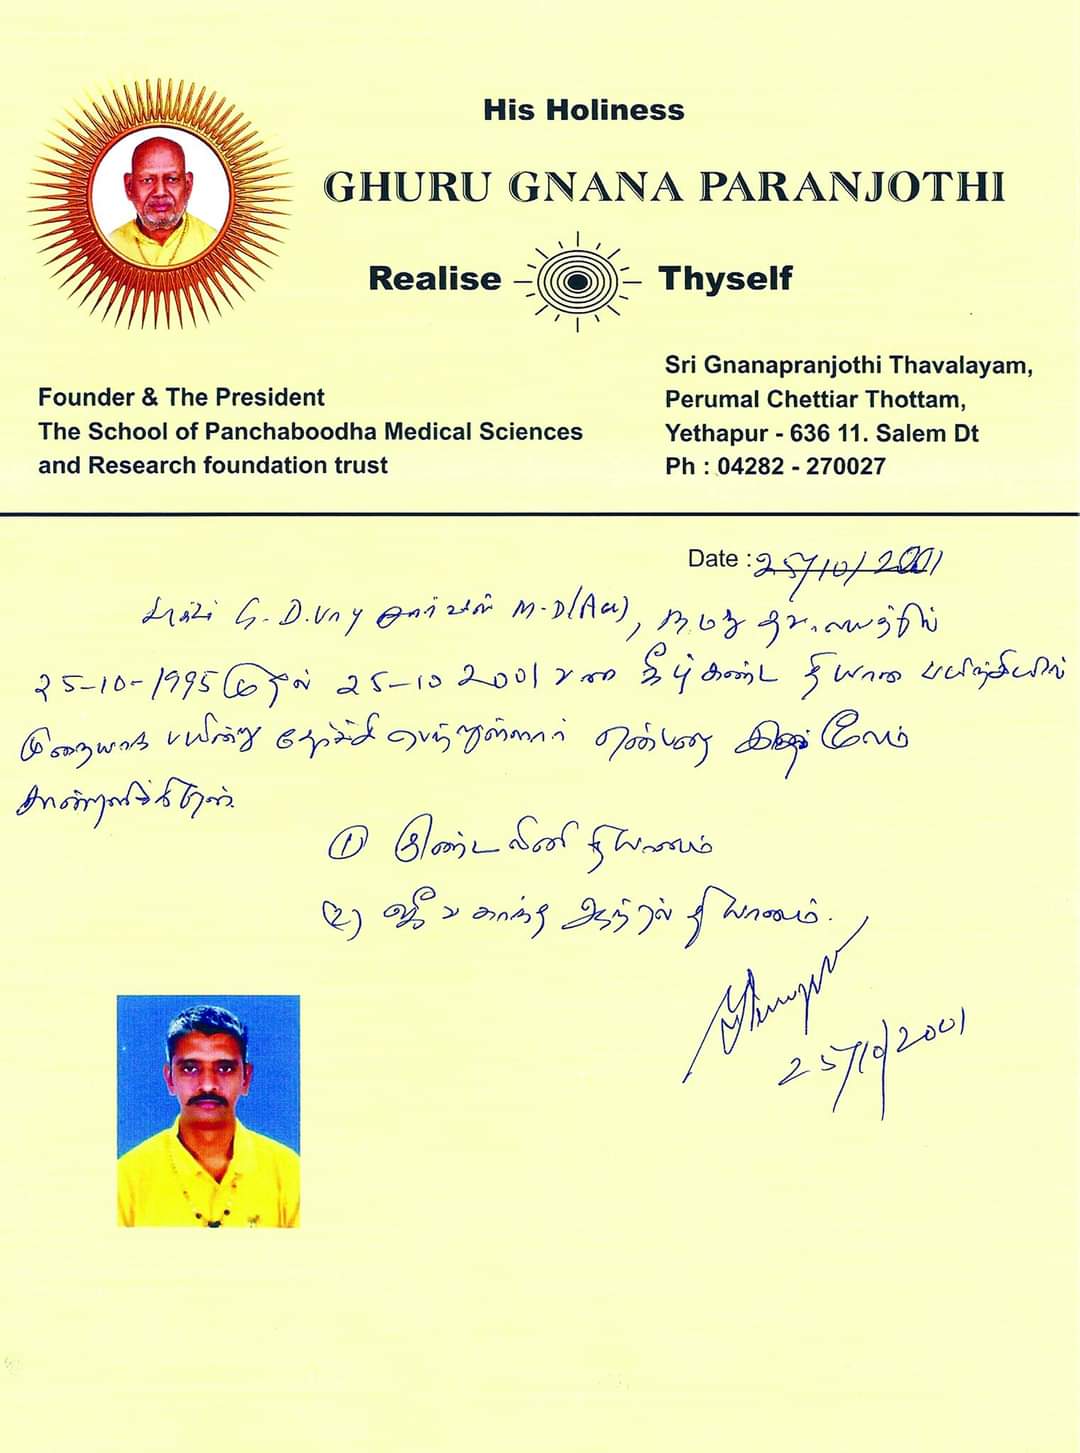 His Holiness
GHURU GNANA PARANJOTHI
Realise Thyself
Founder & The President
The School of Panchaboodha Medical Sciences
and Research foundation trust
Sri Gnanapranjothi Thavalayam,
Perumal Chettiar Thottam,
Yethapur - 636 11. Salem Dt
Ph : 04282 - 270027
Date : 25/10/2001
G. D. M.D(Acu), நமது தவ
25-10-1995 முதல் 25-10 2001 வரை கீழ்கண்ட தியான பயிற்சியில்
முறையாக பயின்று தேர்ச்சி பெற்றுள்ளார் என்பதை இதன் மூலம்
சான்றளிக்கிறேன்.
① குண்டலினி தியானம்
(2) ஜீவ காந்த ஆற்றல் தியானம்.
25/10/2001